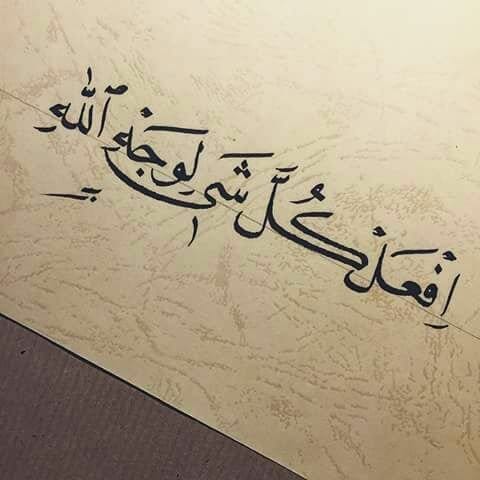 اِفْعَلْ كُلَّ شَي لِوَجْهِ ٱللّٰهِ